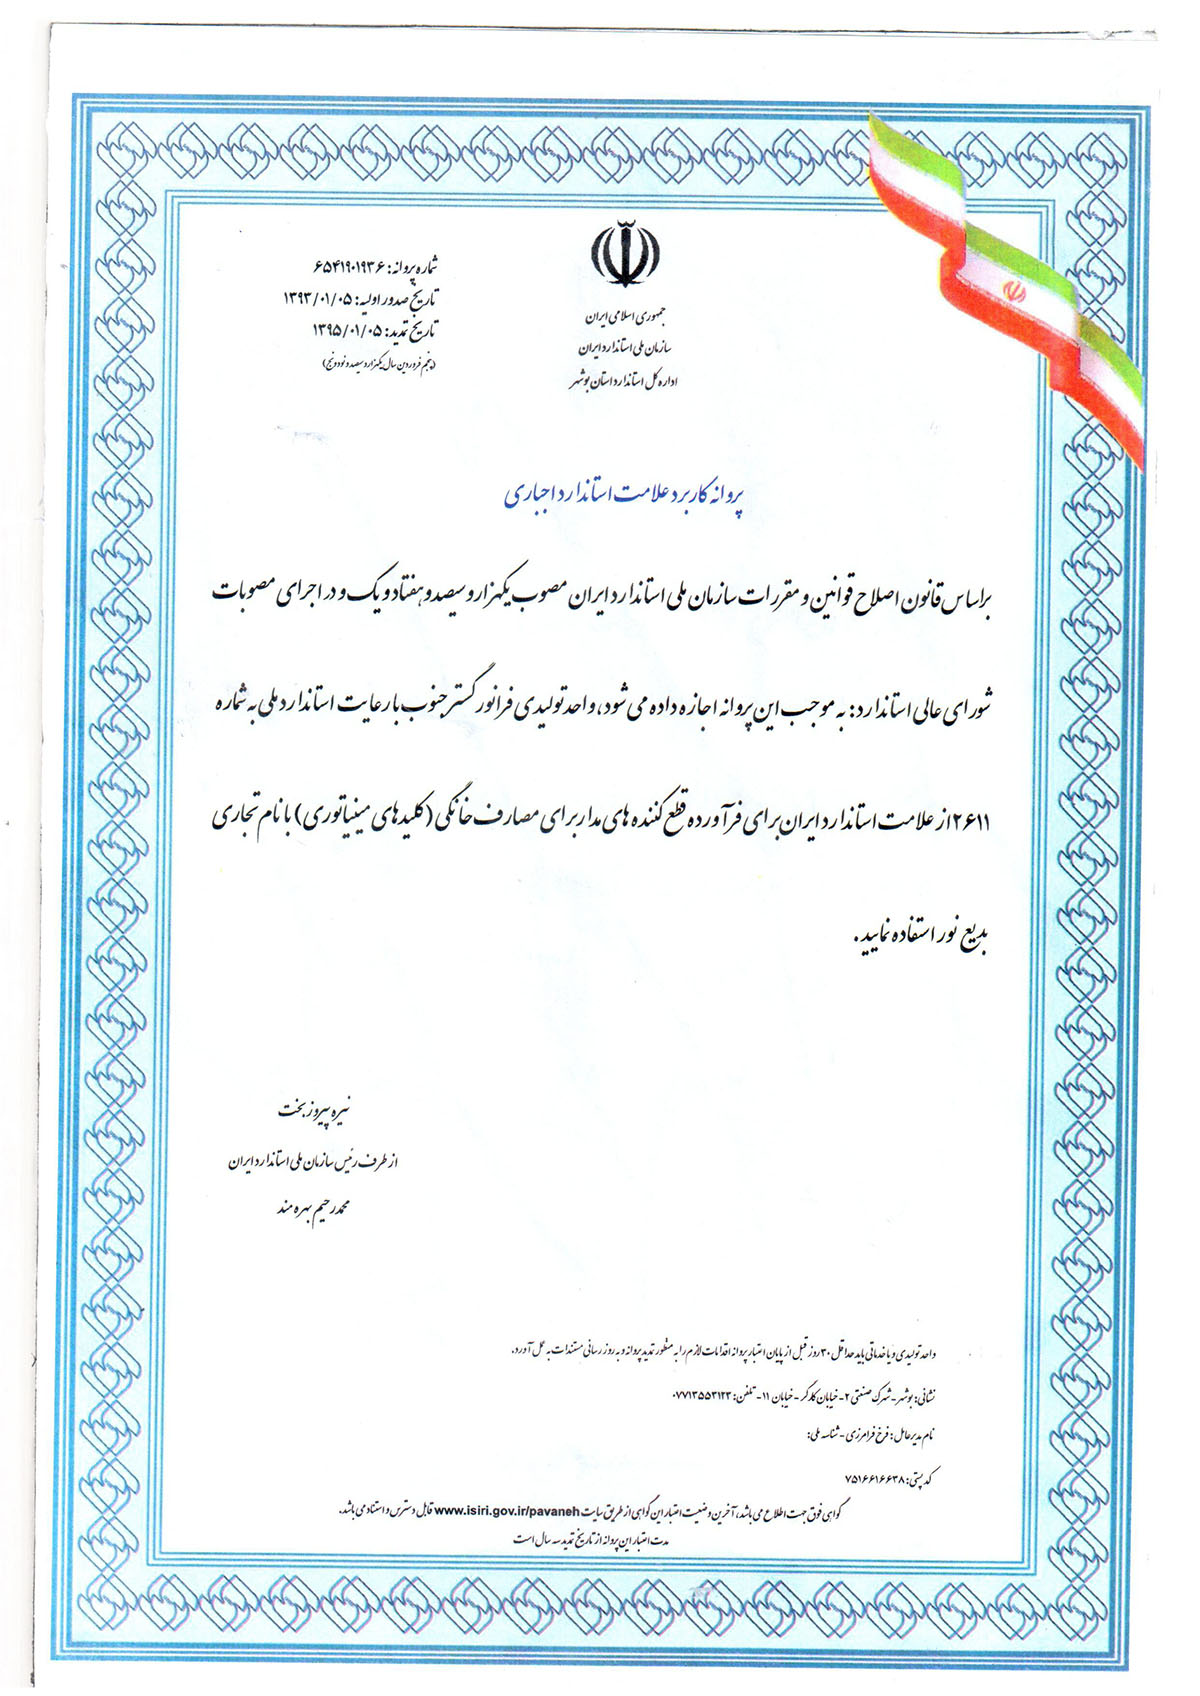 جمهوری اسلامی ایران
سازمان ملی استاندارد ایران
اداره کل استاندارد استان بوشهر
شماره پروانه: ۶۵۴۱۹۰۱۹۳۶
تاریخ صدور اولیه: ۱۳۹۳/۰۱/۰۵
تاریخ تمدید: ۱۳۹۵/۰۱/۰۵
(پنجم فروردین سال یکهزار و سیصد و نود و پنج)
پروانه کاربرد علامت استاندارد اجباری
براساس قانون اصلاح قوانین و مقررات سازمان ملی استاندارد ایران مصوب یکهزار و سیصد و هفتاد و یک و در اجرای مصوبات
شورای عالی استاندارد: به موجب این پروانه اجازه داده می شود، واحد تولیدی فرانور گستر جنوب با رعایت استاندارد ملی به شماره
۲۶۱۱ از علامت استاندارد ایران برای فرآورده قطع کننده های مدار برای مصارف خانگی (کلیدهای مینیاتوری) با نام تجاری
بدیع نور استفاده نمایید.
نیره پیروزبخت
از طرف رئیس سازمان ملی استاندارد ایران
محمدرحیم بهره مند
واحد تولیدی و یا خدماتی باید حداقل ۳۰ روز قبل از پایان اعتبار پروانه اقدامات لازم را به منظور تمدید پروانه و به روز رسانی مستندات به عمل آورد.
نشانی: بوشهر - شهرک صنعتی ۲ - خیابان کارگر - خیابان ۱۱ - تلفن: ۰۷۷۱۳۵۵۳۱۲۳
نام مدیرعامل: فرخ فرامرزی - شناسه ملی:
کد پستی: ۷۵۱۶۶۱۶۶۳۸
گواهی فوق جهت اطلاع می باشد، آخرین وضعیت اعتبار این گواهی از طریق سایت www.isiri.gov.ir/pavaneh قابل دسترس و استناد می باشد.
مدت اعتبار این پروانه از تاریخ تمدید سه سال است